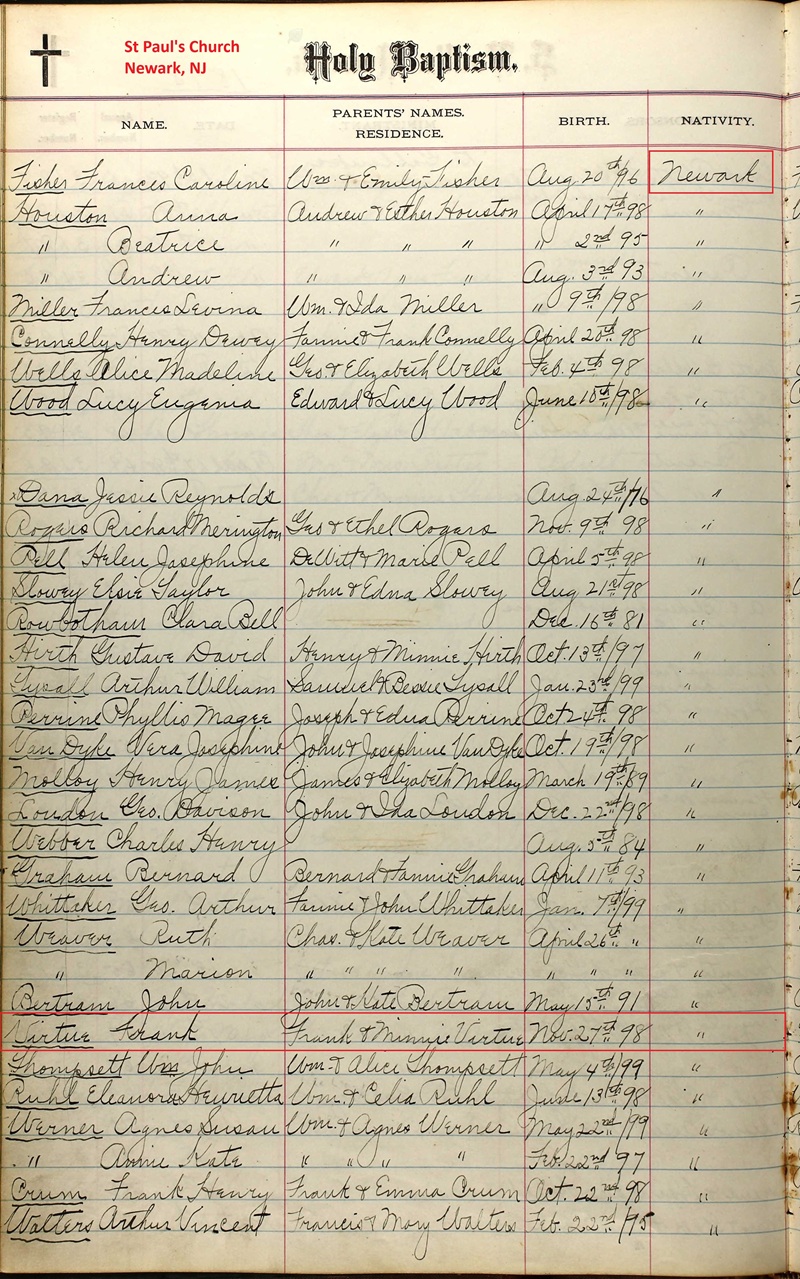 St Paul's Church
Newark, NJ
Holy Baptism.
NAME. PARENTS' NAMES. RESIDENCE. BIRTH. NATIVITY.
Fisher Frances Caroline Wm. & Emily Fisher Aug. 20th/96 Newark
Houston Anna Andrew & Esther Houston April 17th 98 "
" Beatrice " " " " 2nd 95 "
" Andrew " " " Aug. 3rd 93 "
Miller Frances Levina Wm. & Ida Miller " 9th/98 "
Connelly Henry Dewey Fannie & Frank Connelly April 20th 98 "
Wells Alice Madeline Geo. & Elizabeth Wells Feb. 4th 98 "
Wood Lucy Eugenia Edward & Lucy Wood June 10th/98 "
Dana Jessie Reynolds Aug. 24th/76 "
Rogers Richard Merington Geo & Ethel Rogers Nov. 9th 98 "
Pell Helen Josephine DeWitt & Marie Pell April 5th 98 "
Slowey Elsie Taylor John & Edna Slowey Aug 21st 98 "
Rowbotham Clara Bell Dec. 16th 81 "
Hirth Gustave David Henry & Minnie Hirth Oct. 13th/97 "
Lysall Arthur William Samuel & Bessie Lysall Jan. 23rd/99 "
Perrine Phyllis Magee Joseph & Edna Perrine Oct 24th 98 "
Van Dyke Vera Josephine John & Josephine Van Dyke Oct. 19th/98 "
Molloy Henry James James & Elizabeth Molloy March 19th/89 "
Loudon Geo. Davison John & Ida Loudon Dec. 22nd/98 "
Webber Charles Henry Aug. 5th 84 "
Graham Bernard Bernard & Fannie Graham April 11th 93 "
Whittaker Geo. Arthur Fannie & John Whittaker Jan. 7th/99 "
Weaver Ruth Chas. & Kate Weaver April 26th " "
" Marion " " " " " " " "
Bertram John John & Kate Bertram May 15th 91 "
Virtue Frank Frank & Minnie Virtue Nov. 27th 98 "
Thompsett Wm. John Wm. & Alice Thompsett May 4th/99 "
Ruhl Eleanora Henrietta Wm. & Celia Ruhl June 13th 98 "
Werner Agnes Susan Wm. & Agnes Werner May 22nd/99 "
" Annie Kate " " " " Feb. 22nd 97 "
Crum Frank Henry Frank & Emma Crum Oct. 22nd 98 "
Walters Arthur Vincent Francis & Mary Walters Feb. 22nd/75 "